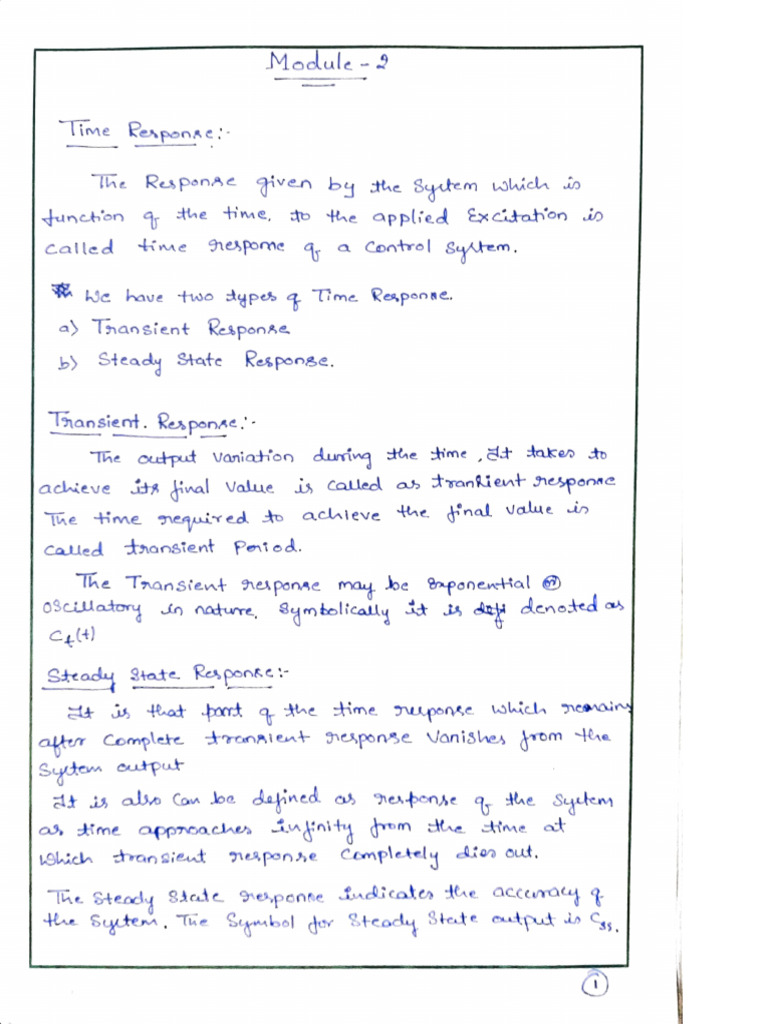 Module - 2
Time Response:-
The Response given by the System which is
function of the time, to the applied Excitation is
called time response of a control System.
We have two types of Time Response.
a) Transient Response
b) Steady State Response.
Transient. Response:-
The output variation during the time, It takes to
achieve its final value is called as transient response
The time required to achieve the final value is
called transient Period.
The Transient response may be Exponential or
Oscillatory in nature. Symbolically it is denoted as
Ct(t)
Steady State Response:-
It is that part of the time response which remains
after Complete transient response Vanishes from the
System output
It is also Can be defined as response of the System
as time approaches infinity from the time at
which transient response Completely dies out.
The Steady State response indicates the accuracy of
the System. The Symbol for Steady State output is Css.
1